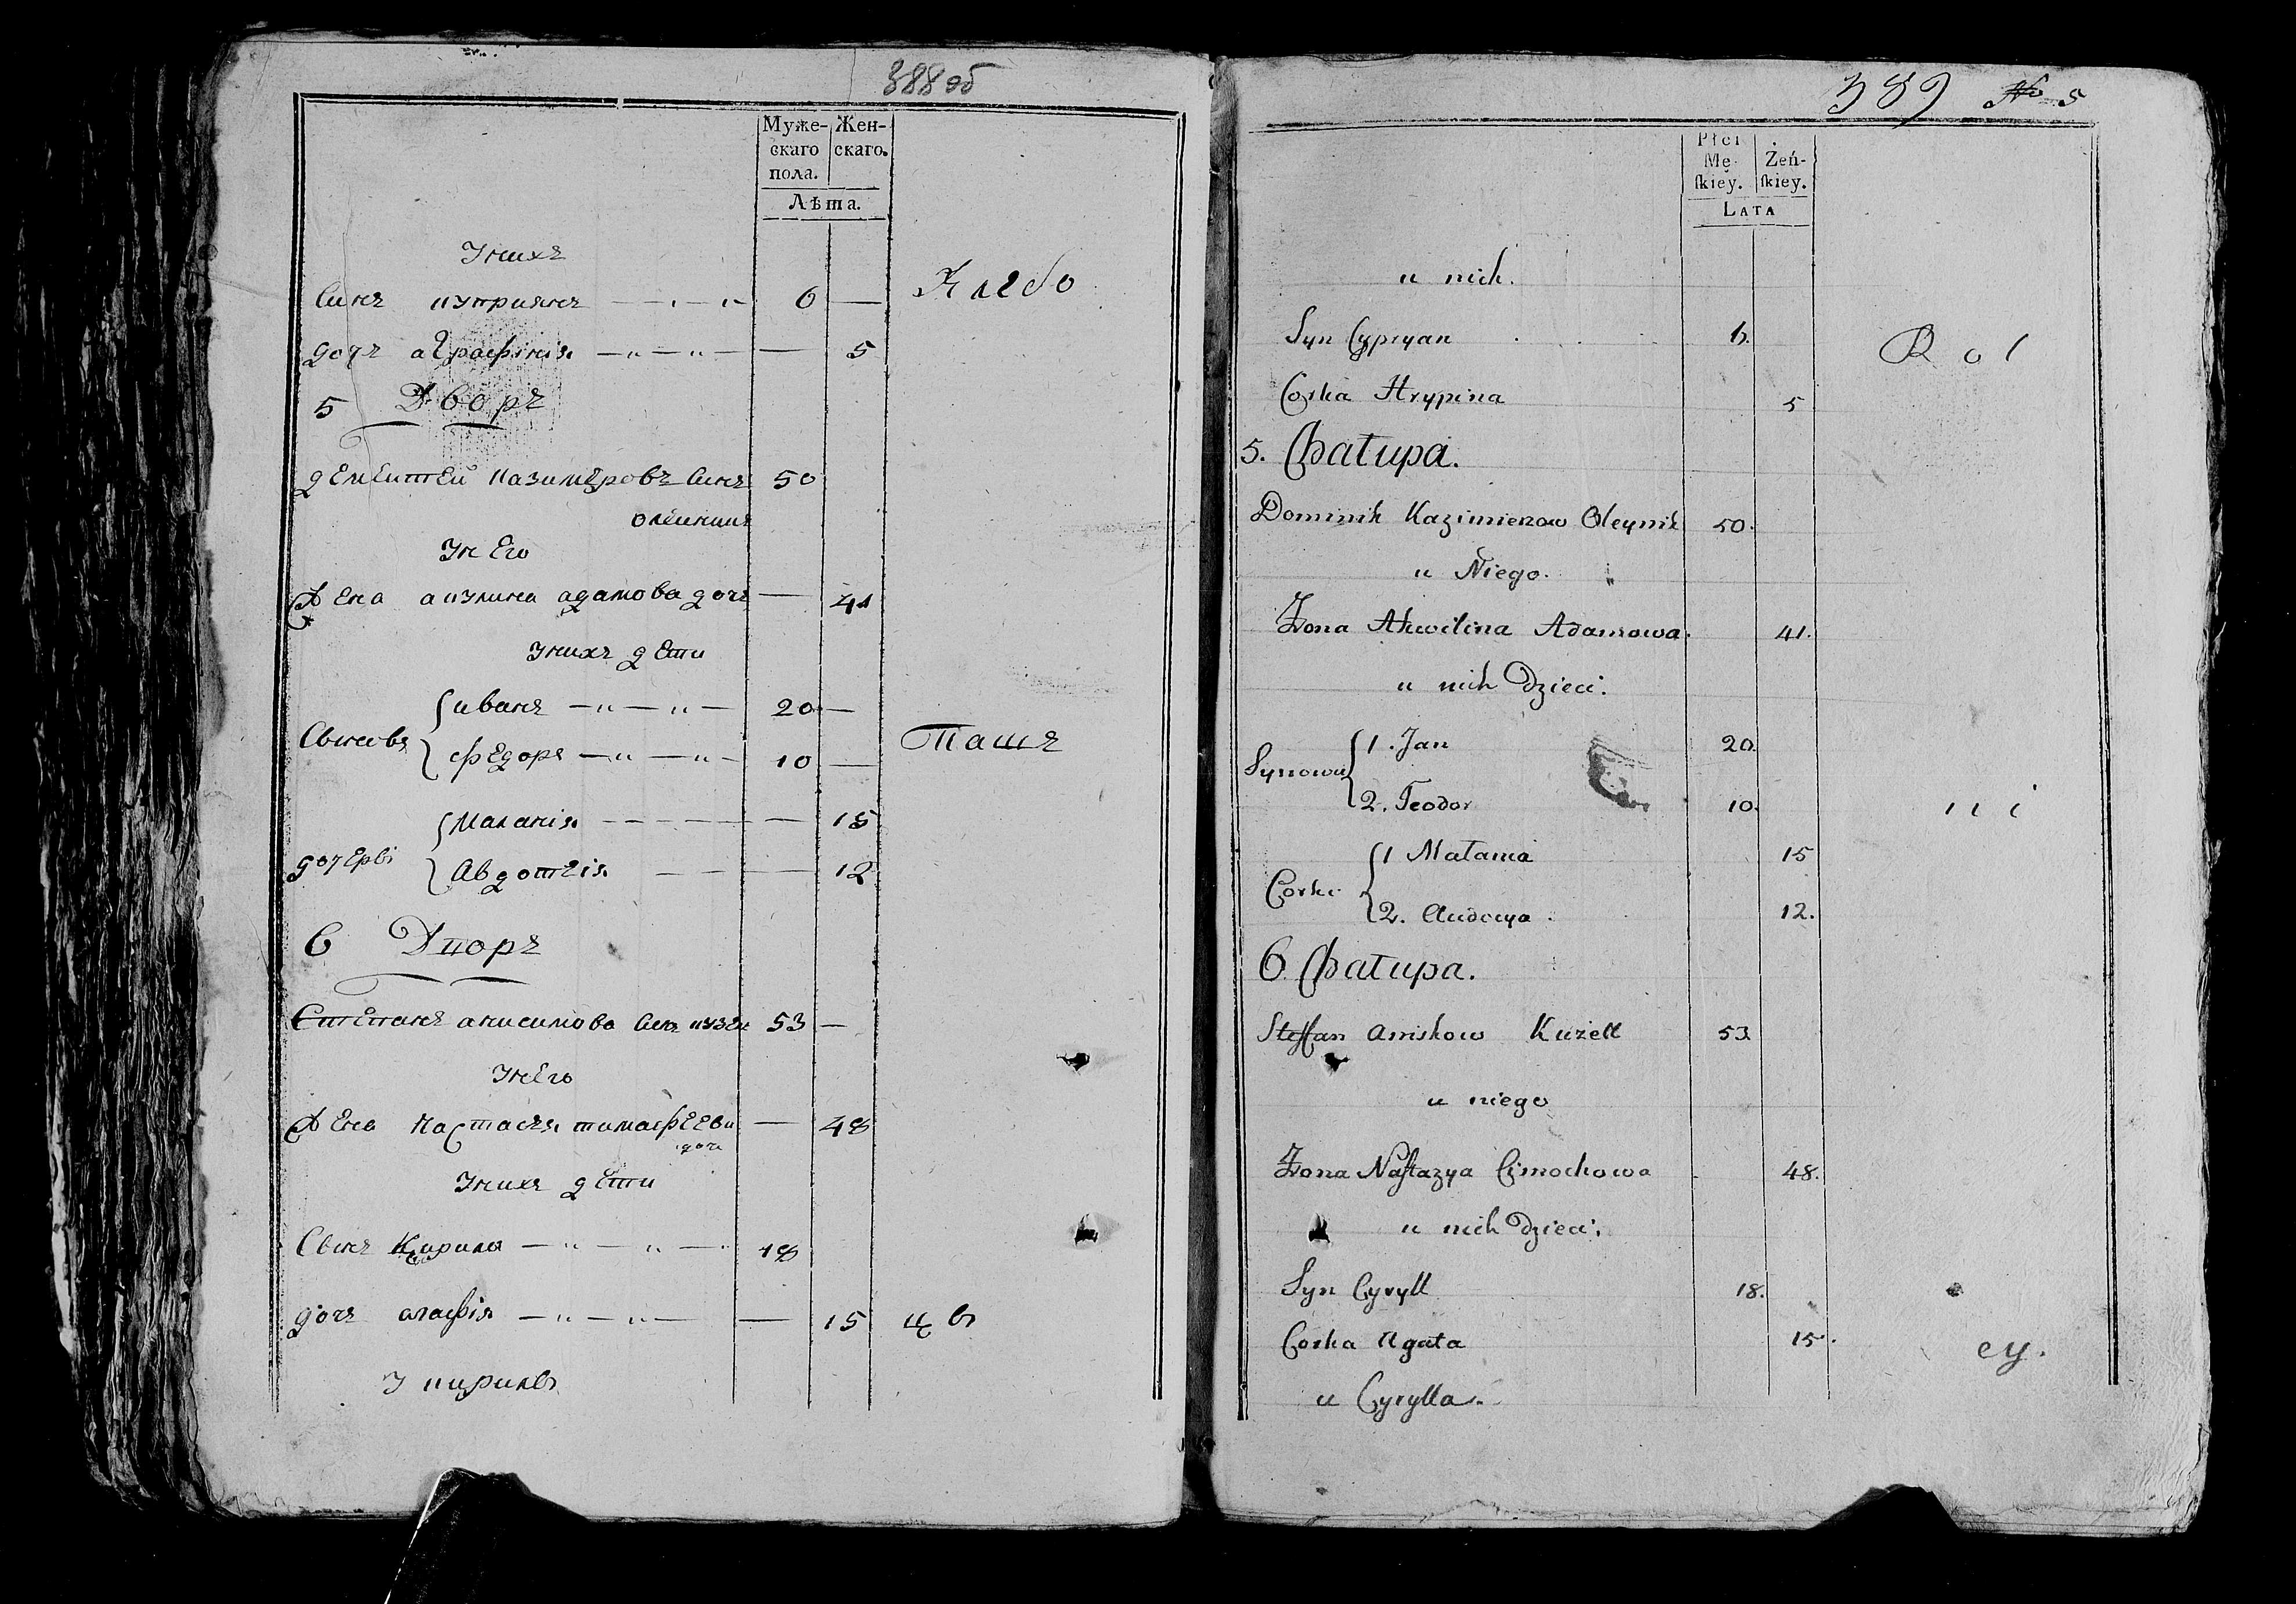 388 об
Муже-
скаго
пола.
Жен-
скаго.
Лѣта.
У нихъ
Синъ куприянъ 6 —
Хлебо
дочъ аграфiнiя — 5
5 Дворъ
дементей казимеровъ Синъ 50
олейникъ
У него
Жена акулина адамова дочъ — 41
У нихъ дети
Сыновя
иванъ 20 —
федоръ 10 —
Пашъ
дочерѣ
Маланiя — 15
Авдотъiя — 12
6 Дворъ
Степанъ анисимовъ Синъ кузел 53 —
У него
Жена настасъя тимофеева — 48
дочъ
У нихъ дети
Сынъ Кирила 18
дочъ агафiя — 15
цы
У кирилы
389 № 5
Płci
Mę-
ſkiey.
Żeń-
ſkiey.
Lata
u nich.
Syn Cypryan 6.
Rol
Corka Hrypina 5
5. Chałupa.
Dominik Kazimierow Oleynik 50.
u Niego.
Żona Akwilina Adamowa. 41.
u nich Dzieci.
Synowie
1. Jan 20.
2. Teodor 10.
n i
Corki
1 Małania 15
2. Audocya 12.
6 Chałupa.
Steffan Aniskow Kużell 53
u niego
Żona Naſtazya Cimochowa 48.
u nich Dzieci.
Syn Cyryll 18.
Corka Agata 15.
cy.
u Cyrylla.